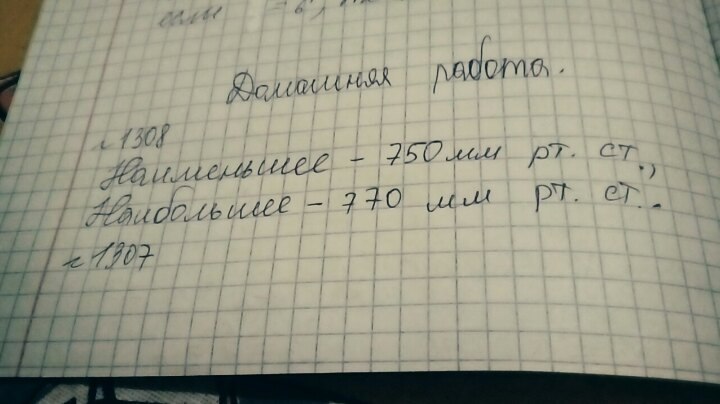 если
Домашняя работа.
№1308
Наименьшее – 750 мм рт. ст.,
Наибольшее – 770 мм рт. ст..
№1307